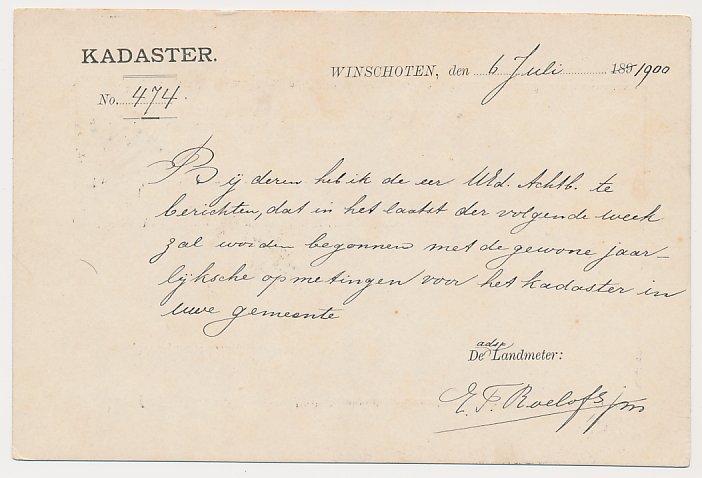 KADASTER.
WINSCHOTEN, den 6 Juli 189 1900
No. 474.
Bij deren heb ik de eer UEd. Achtb. te
berichten, dat in het laatst der volgende week
zal worden begonnen met de gewone jaar-
lijksche opmetingen voor het kadaster in
uwe gemeente
adsp
De Landmeter:
E. F. Roelofs jm